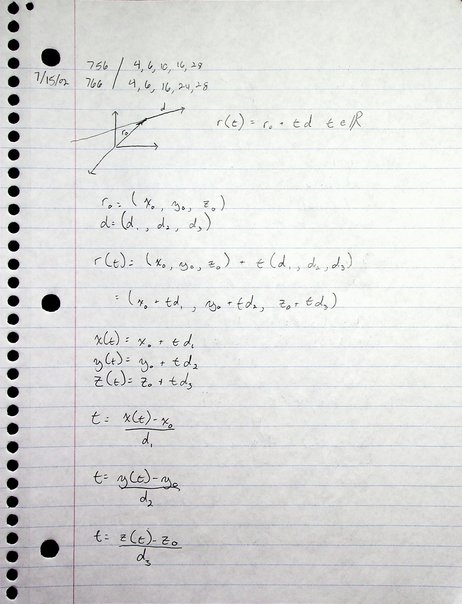 756 / 4, 6, 10, 16, 28
7/15/02 766 / 4, 6, 16, 24, 28
d
r₀
r(t) = r₀ + td t ∈ ℝ
r₀ = (x₀, y₀, z₀)
d = (d₁, d₂, d₃)
r(t) = (x₀, y₀, z₀) + t(d₁, d₂, d₃)
= (x₀ + td₁, y₀ + td₂, z₀ + td₃)
x(t) = x₀ + td₁
y(t) = y₀ + td₂
z(t) = z₀ + td₃
t = x(t) - x₀
d₁
t = y(t) - y₀
d₂
t = z(t) - z₀
d₃